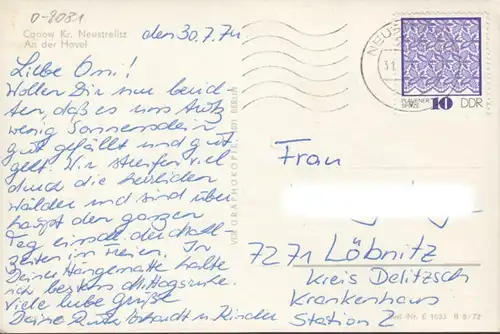 0-8081
Canow Kr. Neustrelitz
An der Havel
den 30.7.74
Liebe Omi!
Wollen Dir nur berich-
ten, daß es uns trotz
wenig Sonnenschein
gut gefällt und gut
geht. Wir streifen viel
durch die herrlichen
Wälder und sind über
haupt den ganzen
Tag einschl. der Mahl
zeiten im Freien. In
Deiner Hängematte halte
ich bestens Mittagsruhe.
Viele liebe Grüße
Deine Kinder
VEB GRAPHOKOPIE, 1401 BERLIN
NEUS
31.
PLAUENER
SPITZE
10 DDR
Frau
7271 Löbnitz
Kreis Delitzsch
Krankenhaus
Station 2
B 8/72